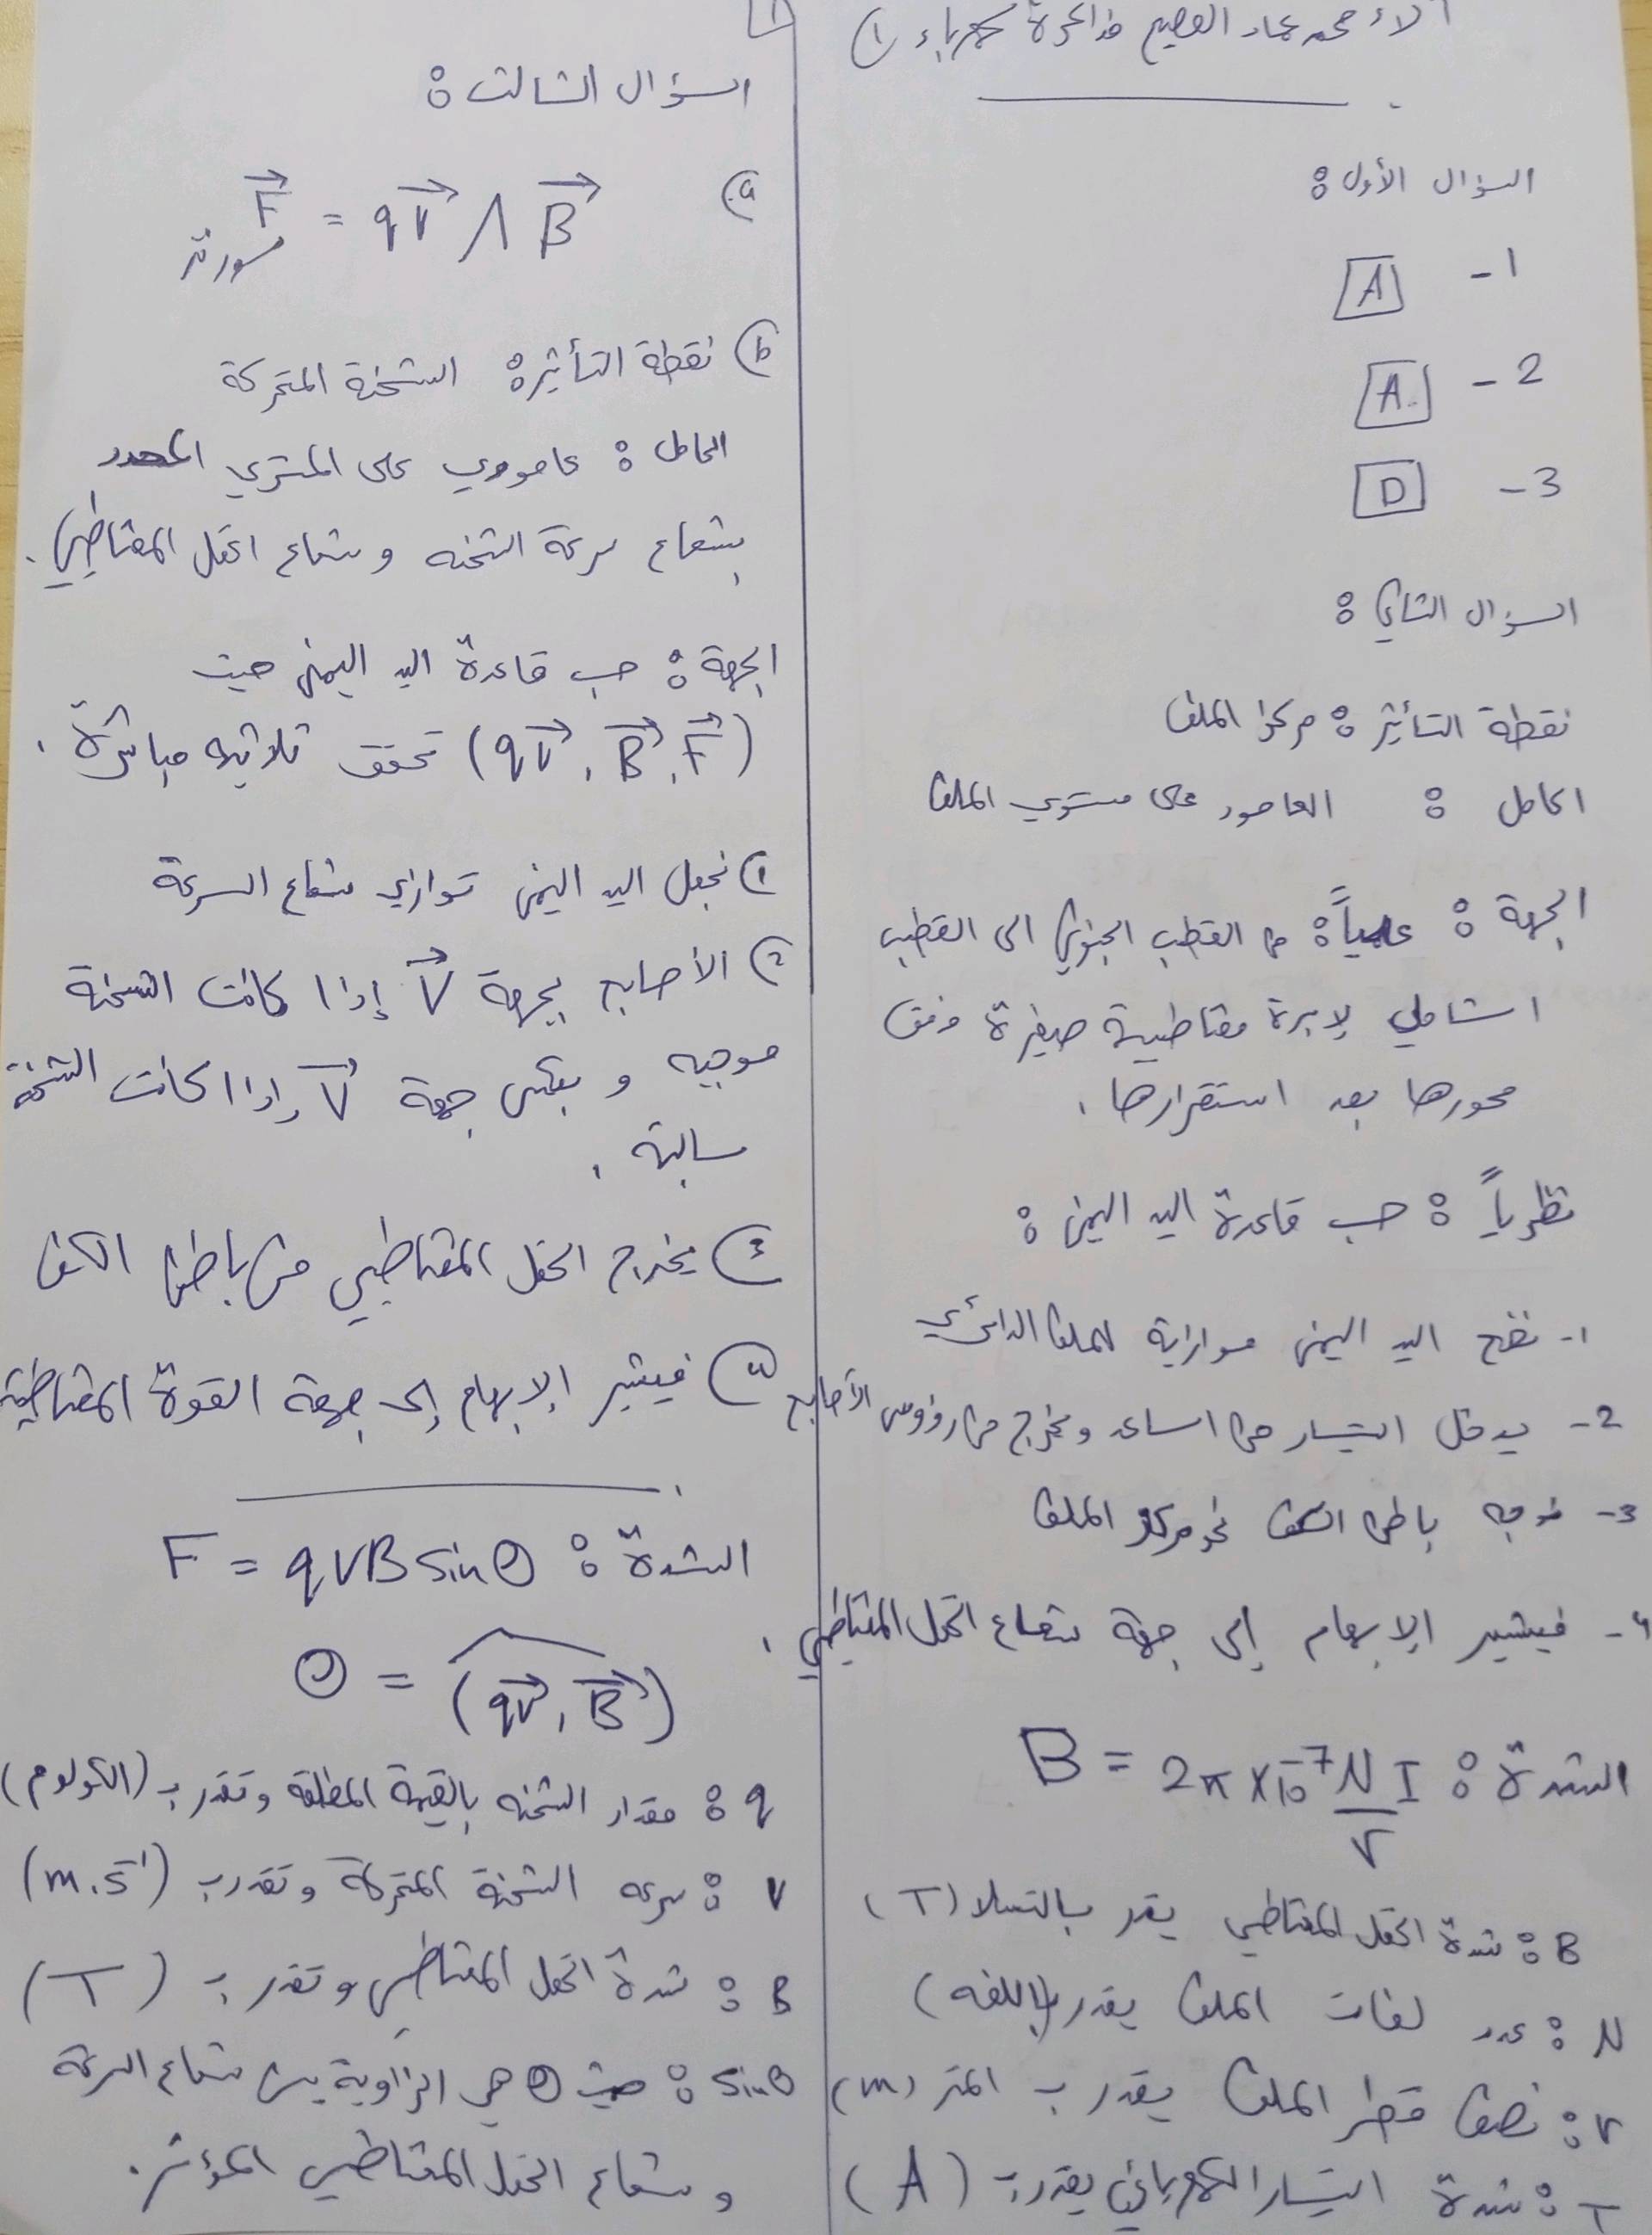 آلاء محمد عماد القصير مذاكرة كهرباء (1
السؤال الأول :
1- A
2- A
3- D
السؤال الثاني :
نقطة التأثير : مركز الملف
الحامل : العامود على مستوي الملف
الجهة : عملياً : من القطب الجنوبي الى القطب
الشمالي لإبرة مغناطيسية صغيرة فوق
محورها بعد استقرارها .
نظرياً : حسب قاعدة اليد اليمنى :
1- نضع اليد اليمنى موازية للملف الدائري
2- يدخل التيار من الساعد ويخرج من رؤوس الأصابع
3- نوجه باطن الكف نحو مركز الملف
4- فيشير الإبهام إلى جهة شعاع الحقل المغناطيسي .
الشدة : B = 2π × 10⁻⁷ N I / r
B : شدة الحقل المغناطيسي يقدر بالتسلا (T)
N : عدد لفات الملف يقدر (باللفة)
r : نصف قطر الملف يقدر ب المتر (m)
I : شدة التيار الكهربائي يقدر ب (A)
السؤال الثالث :
a) F⃗ = qv⃗ ∧ B⃗
لورنتز
b) نقطة التأثير : الشحنة المتحركة
الحامل : عامودي على المستوي المحدد
بشعاع سرعة الشحنة وشعاع الحقل المغناطيسي .
الجهة : حسب قاعدة اليد اليمنى حيث
(qv⃗ , B⃗ , F⃗) تحقق ثلاثية مباشرة .
1) نجعل اليد اليمنى توازي شعاع السرعة
2) الأصابع بجهة v⃗ إذا كانت الشحنة
موجبه و بعكس جهة v⃗ إذا كانت الشحنة
سالبة .
3) يخرج الحقل المغناطيسي من باطن الكف
4) فيشير الإبهام إلى جهة القوة المغناطيسية
الشدة : F = qvB sin θ
θ = (qv⃗ , B⃗)
q : مقدار الشحنه بالقيمة المطلقة وتقدر ب (الكولوم)
v : سرعه الشحنة المتحركة وتقدر ب (m.s⁻¹)
B : شدة الحقل المغناطيسي وتقدر ب (T)
sinθ : حيث θ هي الزاوية بين شعاع السرعة
و شعاع الحقل المغناطيسي المؤثر .